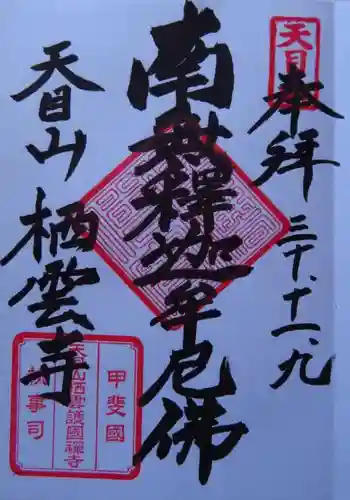 天目
奉拝
三十、十一、九
南無釋迦牟尼佛
天目山
栖雲寺
甲斐國
天目山栖雲護國禪寺
執事司